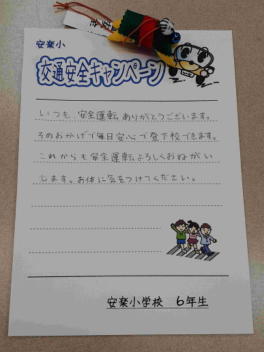 安楽小
交通安全キャンペーン
いつも、安全運転ありがとうございます。
そのおかげで毎日安心で登下校できます。
これからも安全運転よろしくおねがい
します。お体に気をつけてください。
安楽小学校 6年生